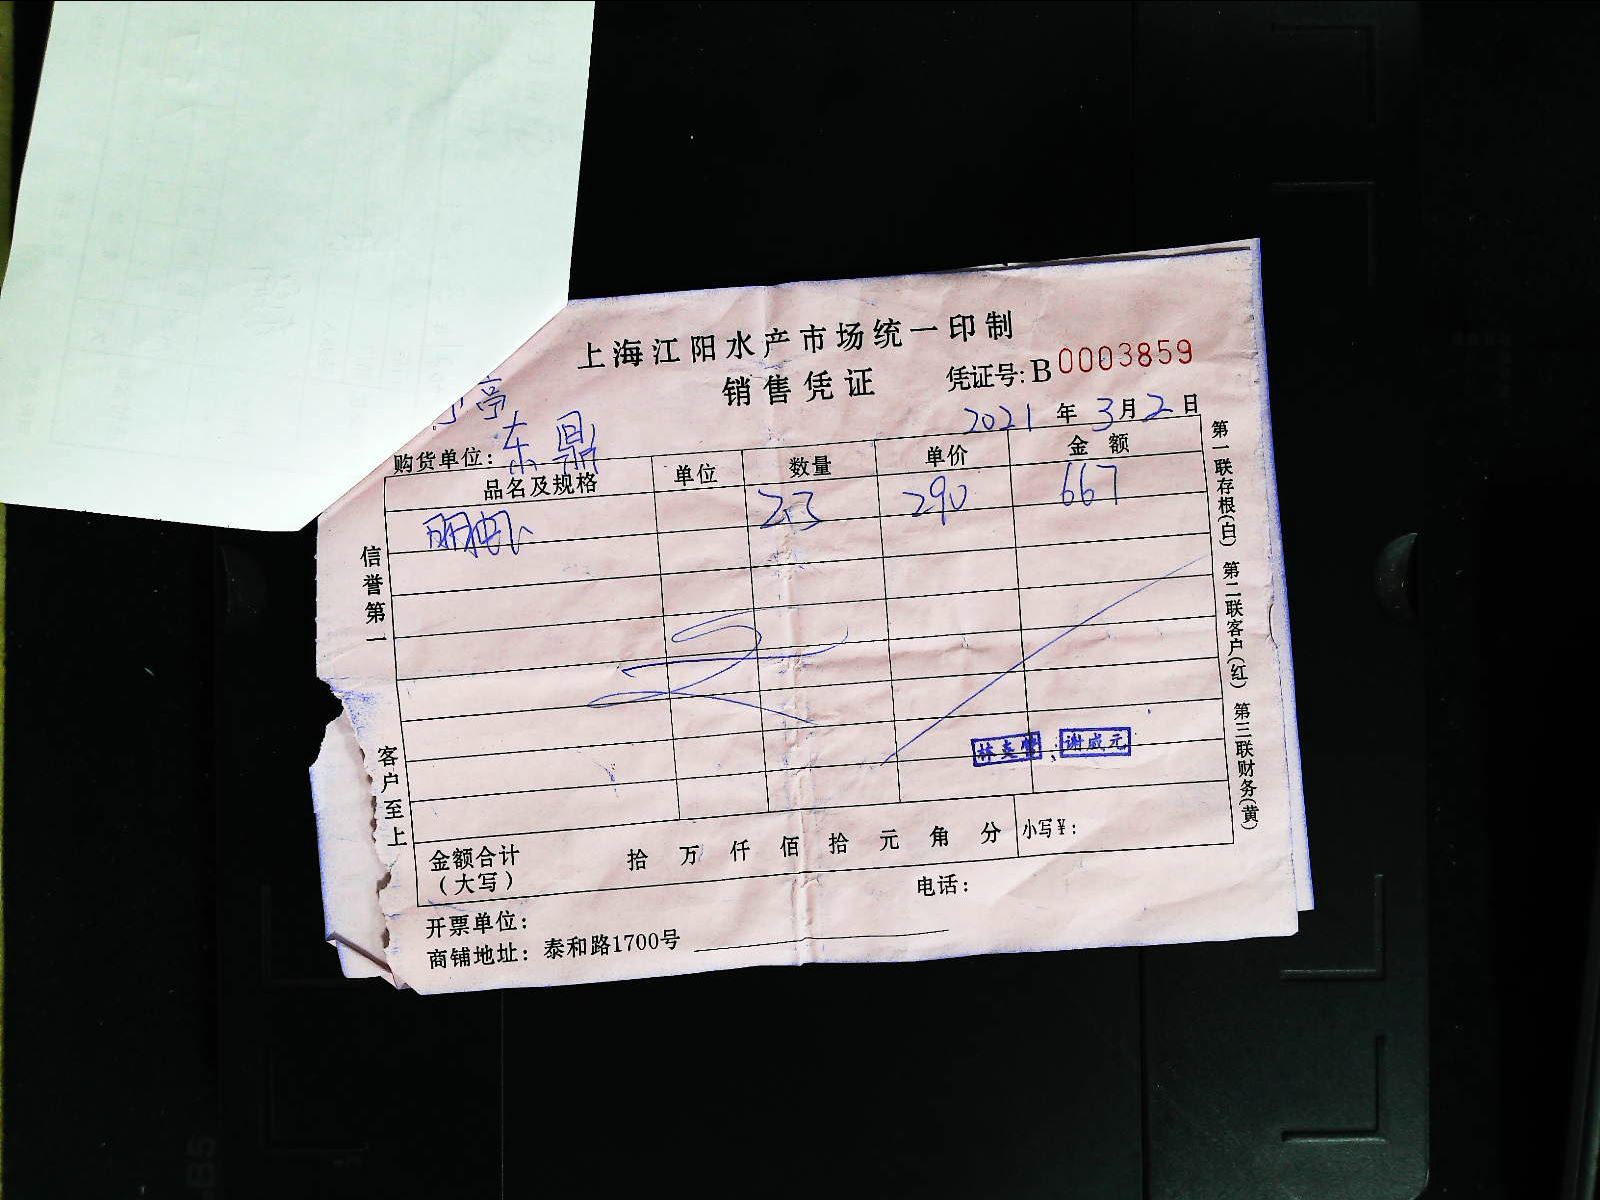 上海江阳水产市场统一印制
销售凭证
凭证号: B 0003859
2021年3月2日
亭
购货单位: 东鼎
品名及规格 单位 数量 单价 金额
2.3 290 667
金额合计 拾万仟佰拾元角分 小写¥:
(大写)
电话:
开票单位:
商铺地址: 泰和路1700号
信誉第一
客户至上
第一联存根(白) 第二联客户(红) 第三联财务(黄)
谢成元